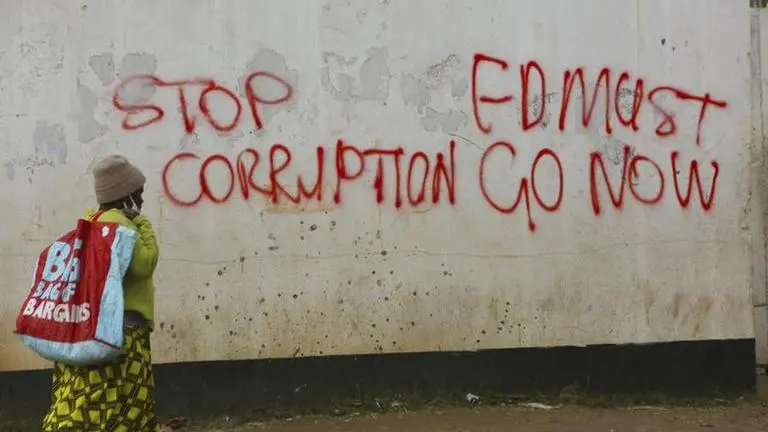 STOP
CORRUPTION
ED MUST
GO NOW
BAG OF
BARGAINS